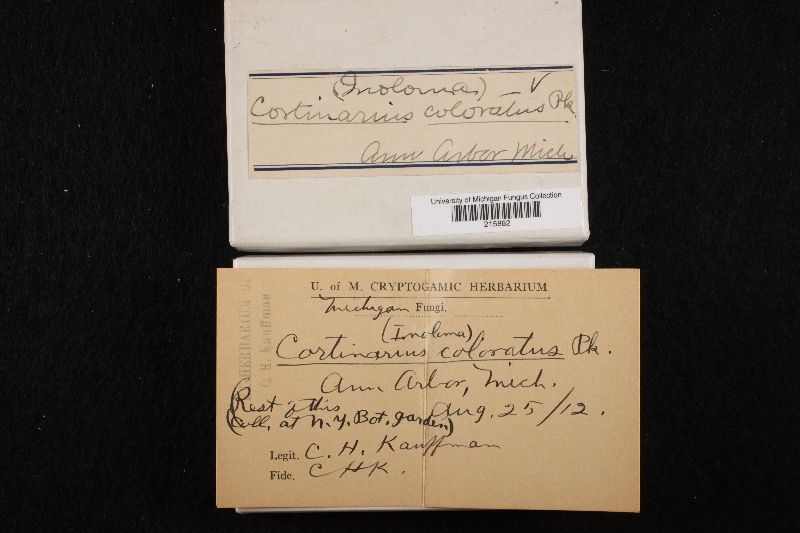 (Inoloma) ✓
Cortinarius coloratus Pk
Ann Arbor Mich
University of Michigan Fungus Collection
215862
HERBARIUM OF
C. H. Kauffman
U. of M. CRYPTOGAMIC HERBARIUM
Michigan Fungi.
(Inoloma)
Cortinarius coloratus Pk.
Ann Arbor, Mich.
(Rest of this Aug. 25/12.
Coll. at N.Y. Bot. garden)
Legit. C. H. Kauffman
Fide. CHK.